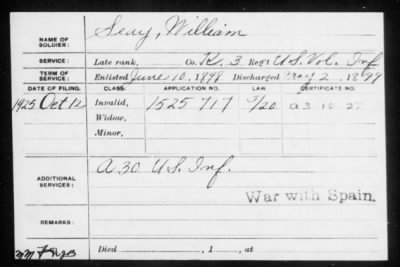 NAME OF SOLDIER: Seay, William
SERVICE: Late rank, Co. K, 3 Reg't U.S. Vol. Inf
TERM OF SERVICE: Enlisted June 10, 1898 Discharged May 2, 1899
DATE OF FILING. CLASS. APPLICATION NO. LAW. CERTIFICATE NO.
1925 Oct 12 Invalid, 1525 717
Widow,
Minor,
ADDITIONAL SERVICES: A 30 U.S. Inf.
War with Spain.
REMARKS:
Died , 1 , at